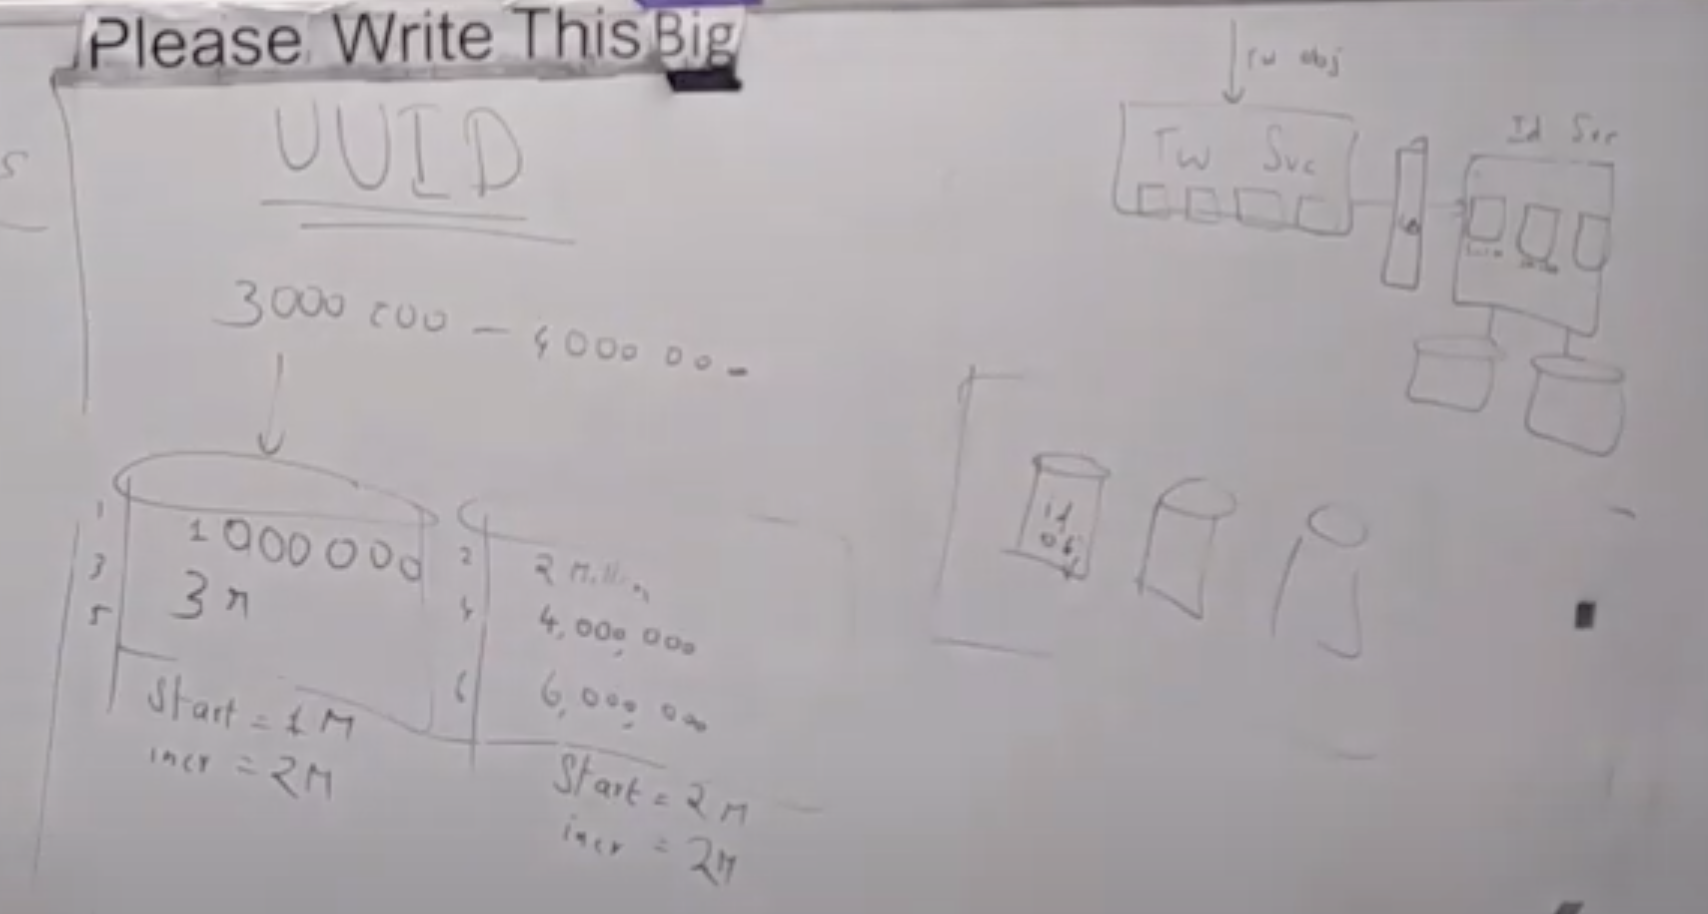 Please Write This Big
UUID
3000 000 - 4000 00
1
3
5
1000000
3M
Start = 1M
incr = 2M
2
4
6
2 Million
4,000,000
6,000,000
Start = 2M
incr = 2M
tw obj
Tw Svc
LB
Id Svc
id
obj
S